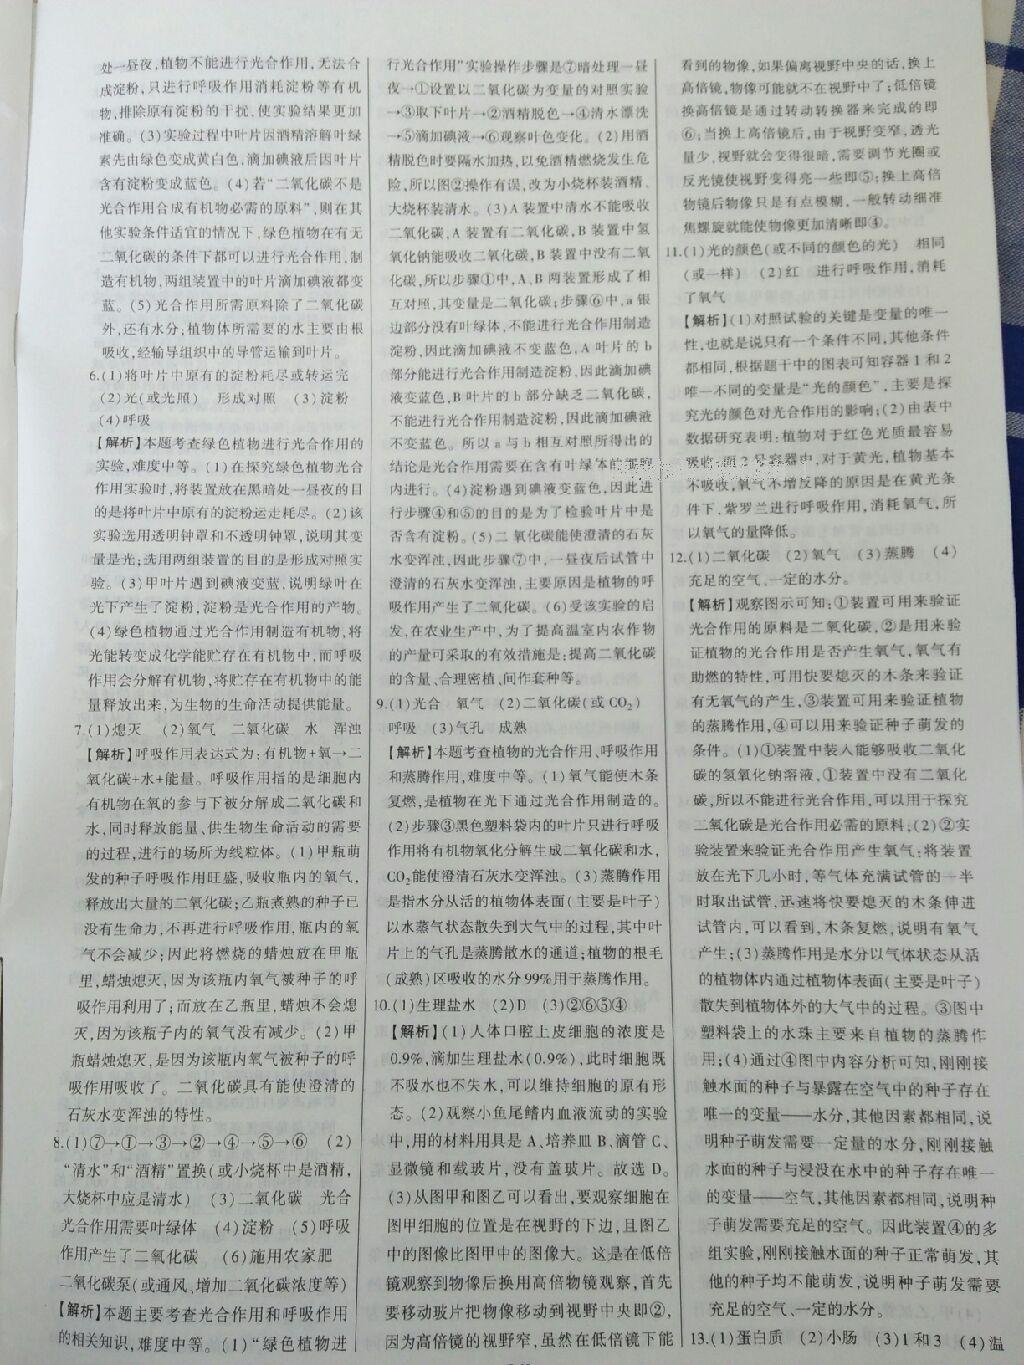 处一昼夜,植物不能进行光合作用,无法合
成淀粉,只进行呼吸作用消耗淀粉等有机
物,排除原有淀粉的干扰,使实验结果更加
准确。(3)实验过程中叶片因酒精溶解叶绿
素先由绿色变成黄白色,滴加碘液后因叶片
含有淀粉变成蓝色。(4)若“二氧化碳不是
光合作用合成有机物必需的原料”,则在其
他实验条件适宜的情况下,绿色植物在有无
二氧化碳的条件下都可以进行光合作用,制
造有机物,两组装置中的叶片滴加碘液都变
蓝。(5)光合作用所需原料除了二氧化碳
外,还有水分,植物体所需要的水主要由根
吸收,经输导组织中的导管运输到叶片。
6.(1)将叶片中原有的淀粉耗尽或转运完
(2)光(或光照) 形成对照 (3)淀粉
(4)呼吸
【解析】本题考查绿色植物进行光合作用的
实验,难度中等。(1)在探究绿色植物光合
作用实验时,将装置放在黑暗处一昼夜的目
的是将叶片中原有的淀粉运走耗尽。(2)该
实验选用透明钟罩和不透明钟罩,说明其变
量是光;选用两组装置的目的是形成对照实
验。(3)甲叶片遇到碘液变蓝,说明绿叶在
光下产生了淀粉,淀粉是光合作用的产物。
(4)绿色植物通过光合作用制造有机物,将
光能转变成化学能贮存在有机物中,而呼吸
作用会分解有机物,将贮存在有机物中的能
量释放出来,为生物的生命活动提供能量。
7.(1)熄灭 (2)氧气 二氧化碳 水 浑浊
【解析】呼吸作用表达式为:有机物+氧→二
氧化碳+水+能量。呼吸作用指的是细胞内
有机物在氧的参与下被分解成二氧化碳和
水,同时释放能量、供生物生命活动的需要
的过程,进行的场所为线粒体。(1)甲瓶萌
发的种子呼吸作用旺盛,吸收瓶内的氧气,
释放出大量的二氧化碳;乙瓶煮熟的种子已
没有生命力,不再进行呼吸作用,瓶内的氧
气不会减少;因此将燃烧的蜡烛放在甲瓶
里,蜡烛熄灭,因为该瓶内氧气被种子的呼
吸作用利用了;而放在乙瓶里,蜡烛不会熄
灭,因为该瓶子内的氧气没有减少。(2)甲
瓶蜡烛熄灭,是因为该瓶内氧气被种子的呼
吸作用吸收了。二氧化碳具有能使澄清的
石灰水变浑浊的特性。
8.(1)⑦→①→③→②→④→⑤→⑥ (2)
“清水”和“酒精”置换(或小烧杯中是酒精,
大烧杯中应是清水) (3)二氧化碳 光合
光合作用需要叶绿体 (4)淀粉 (5)呼吸
作用产生了二氧化碳 (6)施用农家肥
二氧化碳泵(或通风、增加二氧化碳浓度等)
【解析】本题主要考查光合作用和呼吸作用
的相关知识,难度中等。(1)“绿色植物进
行光合作用”实验操作步骤是⑦暗处理一昼
夜→①设置以二氧化碳为变量的对照实验
→③取下叶片→②酒精脱色→④清水漂洗
→⑤滴加碘液→⑥观察叶色变化。(2)用酒
精脱色时要隔水加热,以免酒精燃烧发生危
险,所以图②操作有误,改为小烧杯装酒精、
大烧杯装清水。(3)A装置中清水不能吸收
二氧化碳,A装置有二氧化碳,B装置中氢
氧化钠能吸收二氧化碳,B装置中没有二氧
化碳,所以步骤①中,A、B两装置形成了相
互对照,其变量是二氧化碳;步骤⑥中,a银
边部分没有叶绿体,不能进行光合作用制造
淀粉,因此滴加碘液不变蓝色,A叶片的b
部分能进行光合作用制造淀粉,因此滴加碘
液变蓝色,B叶片的b部分缺乏二氧化碳,
不能进行光合作用制造淀粉,因此滴加碘液
不变蓝色。所以a与b相互对照所得出的
结论是光合作用需要在含有叶绿体的
内进行。(4)淀粉遇到碘液变蓝色,因此进
行步骤④和⑤的目的是为了检验叶片中是
否含有淀粉。(5)二氧化碳能使澄清的石灰
水变浑浊,因此步骤⑦中,一昼夜后试管中
澄清的石灰水变浑浊,主要原因是植物的呼
吸作用产生了二氧化碳。(6)受该实验的启
发,在农业生产中,为了提高温室内农作物
的产量可采取的有效措施是:提高二氧化碳
的含量、合理密植、间作套种等。
9.(1)光合 氧气 (2)二氧化碳(或CO₂)
呼吸 (3)气孔 成熟
【解析】本题考查植物的光合作用、呼吸作用
和蒸腾作用,难度中等。(1)氧气能使木条
复燃,是植物在光下通过光合作用制造的。
(2)步骤③黑色塑料袋内的叶片只进行呼吸
作用将有机物氧化分解生成二氧化碳和水,
CO₂能使澄清石灰水变浑浊。(3)蒸腾作用
是指水分从活的植物体表面(主要是叶子)
以水蒸气状态散失到大气中的过程,其中叶
片上的气孔是蒸腾散水的通道;植物的根毛
(成熟)区吸收的水分99%用于蒸腾作用。
10.(1)生理盐水 (2)D (3)②⑥⑤④
【解析】(1)人体口腔上皮细胞的浓度是
0.9%,滴加生理盐水(0.9%),此时细胞既
不吸水也不失水,可以维持细胞的原有形
态。(2)观察小鱼尾鳍内血液流动的实验
中,用的材料用具是A、培养皿B、滴管C、
显微镜和载玻片,没有盖玻片。故选D。
(3)从图甲和图乙可以看出,要观察细胞在
图甲细胞的位置是在视野的下边,且图乙
中的图像比图甲中的图像大。这是在低倍
镜观察到物像后换用高倍物镜观察,首先
要移动玻片把物像移动到视野中央即②,
因为高倍镜的视野窄,虽然在低倍镜下能
看到的物像,如果偏离视野中央的话,换上
高倍镜,物像可能就不在视野中了;低倍镜
换高倍镜是通过转动转换器来完成的即
⑥;当换上高倍镜后,由于视野变窄,透光
量少,视野就会变得很暗,需要调节光圈或
反光镜使视野变得亮一些即⑤;换上高倍
物镜后物像只是有点模糊,一般转动细准
焦螺旋就能使物像更加清晰即④。
11.(1)光的颜色(或不同的颜色的光) 相同
(或一样) (2)红 进行呼吸作用,消耗
了氧气
【解析】(1)对照试验的关键是变量的唯一
性,也就是说只有一个条件不同,其他条件
都相同,根据题干中的图表可知容器1和2
唯一不同的变量是“光的颜色”,主要是探
究光的颜色对光合作用的影响;(2)由表中
数据研究表明:植物对于红色光质最容易
吸收,而2号容器中,对于黄光,植物基本
不吸收,氧气不增反降的原因是在黄光条
件下,紫罗兰进行呼吸作用,消耗氧气,所
以氧气的量降低。
12.(1)二氧化碳 (2)氧气 (3)蒸腾 (4)
充足的空气、一定的水分。
【解析】观察图示可知:①装置可用来验证
光合作用的原料是二氧化碳,②是用来验
证植物的光合作用是否产生氧气,氧气有
助燃的特性,可用快要熄灭的木条来验证
有无氧气的产生,③装置可用来验证植物
的蒸腾作用,④可以用来验证种子萌发的
条件。(1)①装置中装入能够吸收二氧化
碳的氢氧化钠溶液,①装置中没有二氧化
碳,所以不能进行光合作用,可以用于探究
二氧化碳是光合作用必需的原料;(2)②实
验装置来验证光合作用产生氧气:将装置
放在光下几小时,等气体充满试管的一半
时取出试管,迅速将快要熄灭的木条伸进
试管内,可以看到,木条复燃,说明有氧气
产生;(3)蒸腾作用是水分以气体状态从活
的植物体内通过植物体表面(主要是叶子)
散失到植物体外的大气中的过程。③图中
塑料袋上的水珠主要来自植物的蒸腾作
用;(4)通过④图中内容分析可知,刚刚接
触水面的种子与暴露在空气中的种子存在
唯一的变量——水分,其他因素都相同,说
明种子萌发需要一定量的水分,刚刚接触
水面的种子与浸没在水中的种子存在唯一
的变量——空气,其他因素都相同,说明种
子萌发需要充足的空气。因此装置④的多
组实验,刚刚接触水面的种子正常萌发,其
他的种子均不能萌发,说明种子萌发需要
充足的空气、一定的水分。
13.(1)蛋白质 (2)小肠 (3)1和3 (4)温